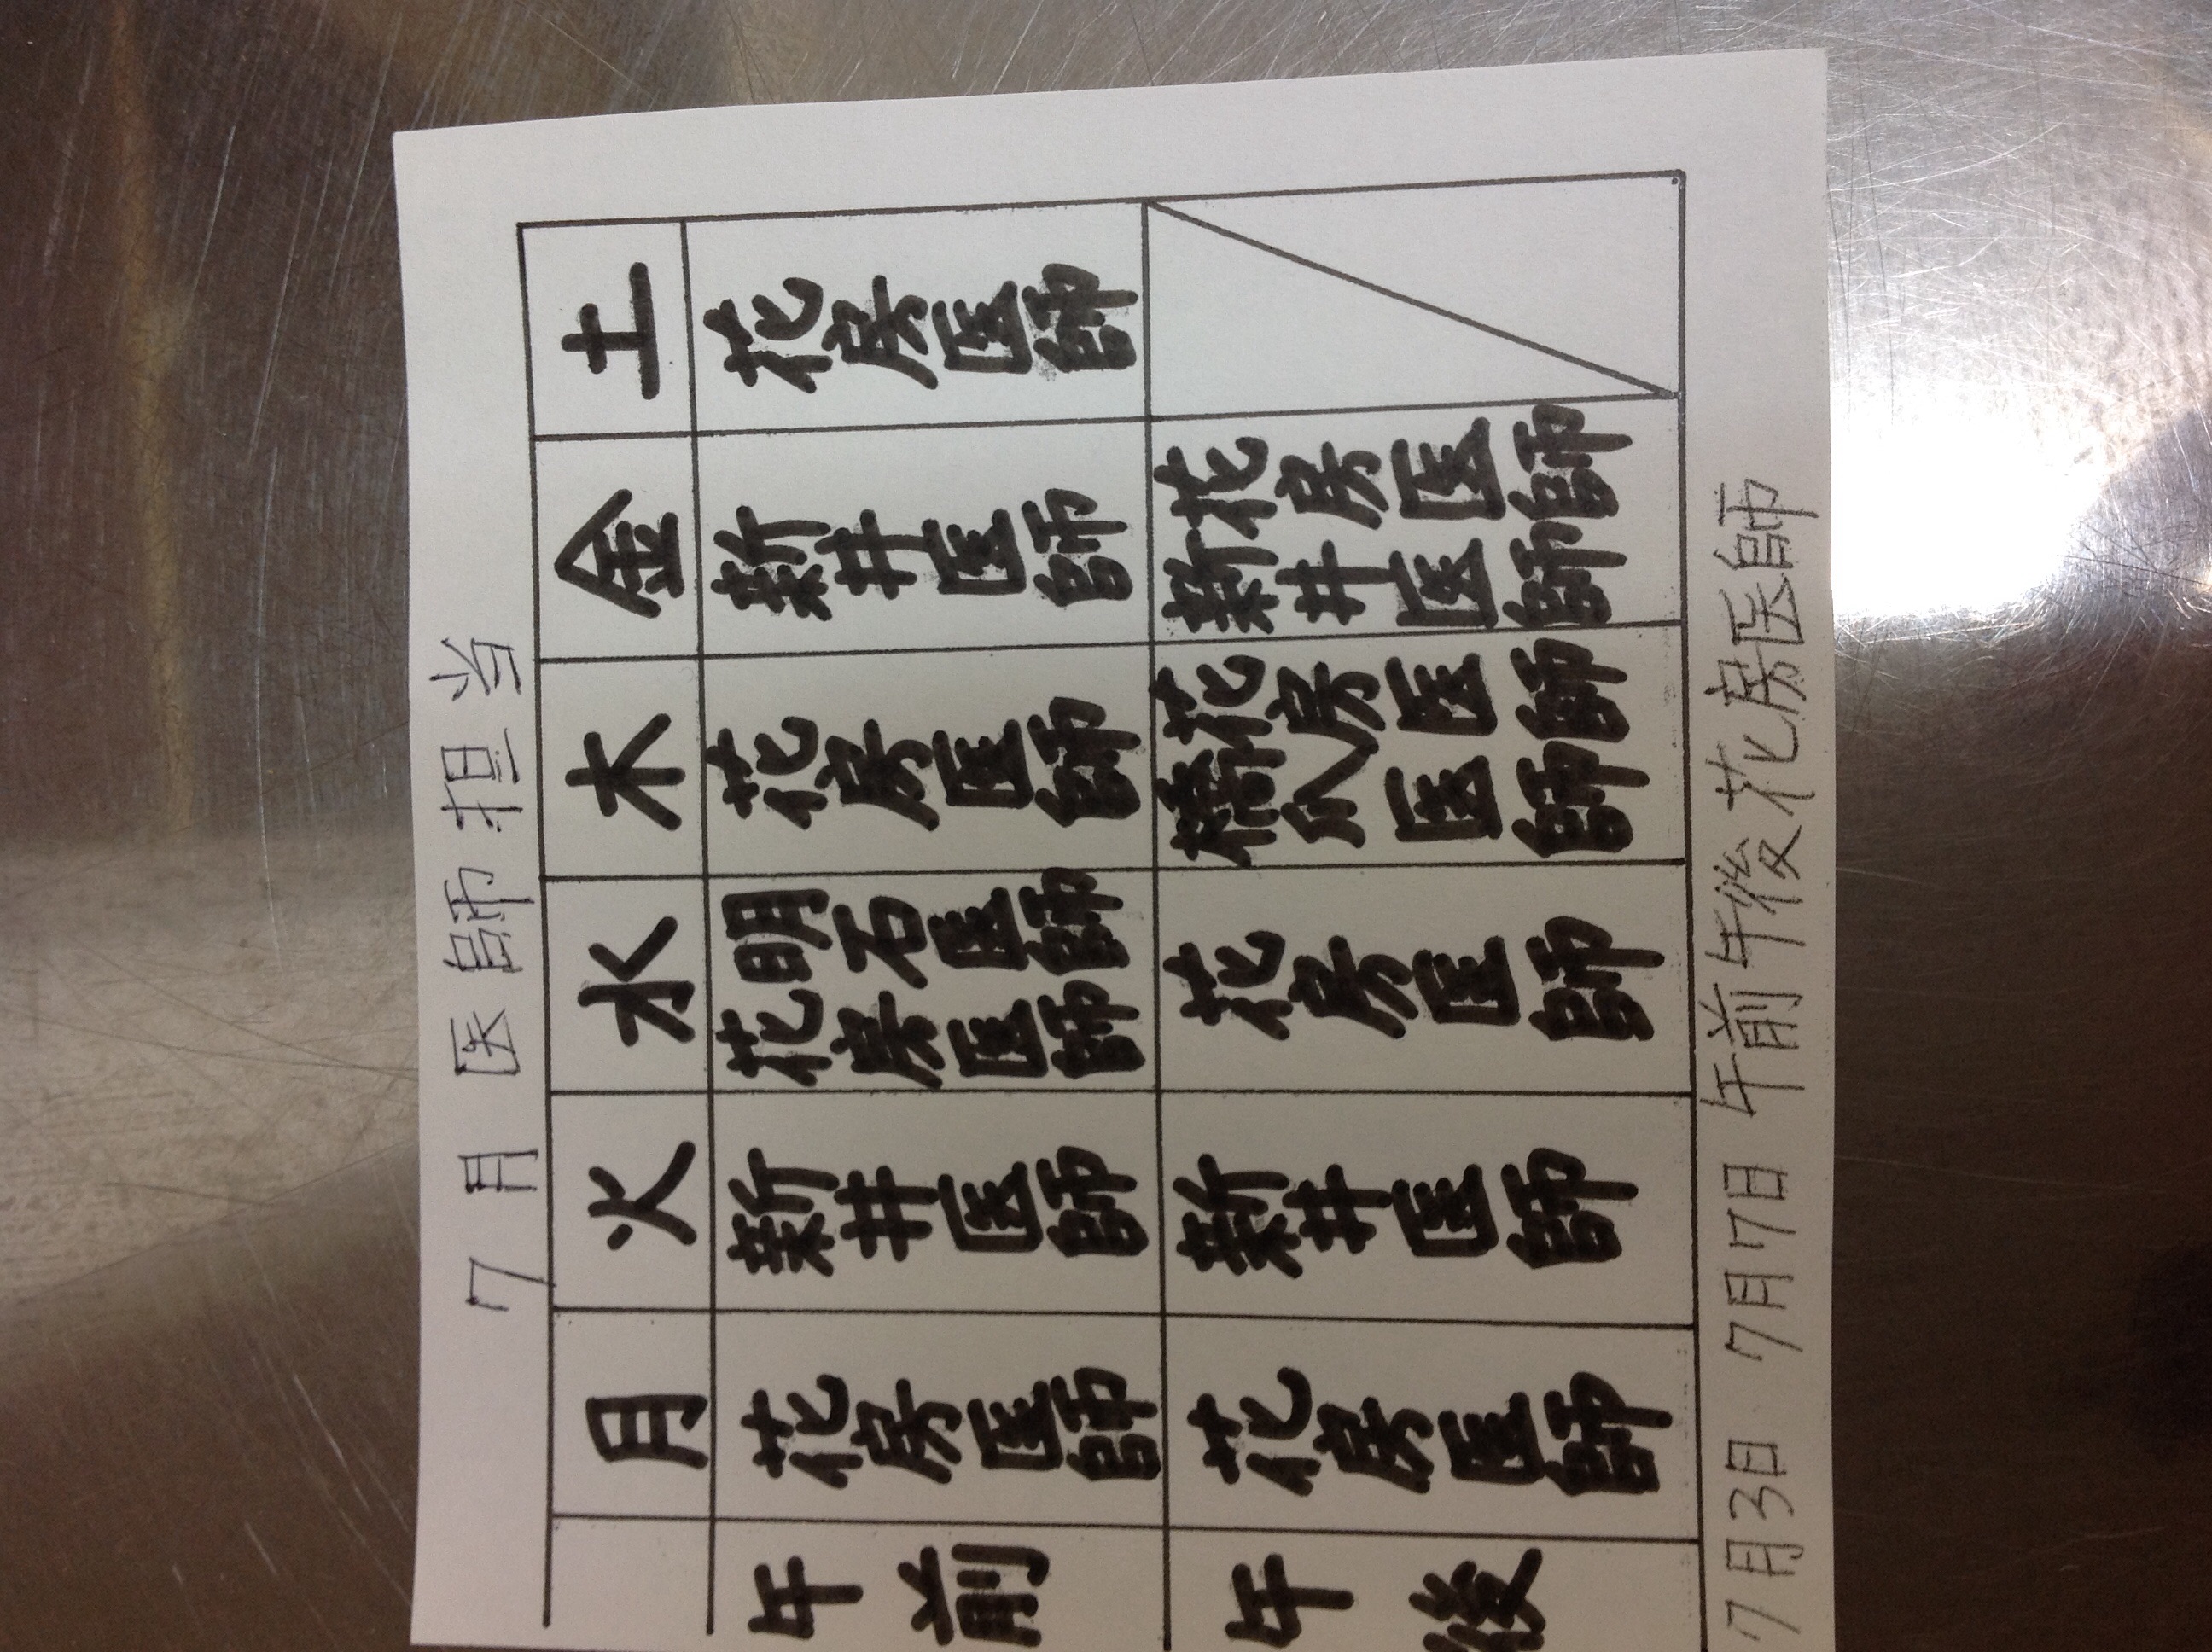 7月 医師担当
月 火 水 木 金 土
午前 花房医師 新井医師 花房医師 明石医師 花房医師 新井医師 花房医師
午後 花房医師 新井医師 花房医師 橋爪医師 花房医師 新井医師 花房医師
7月3日 7月7日 午前午後花房医師